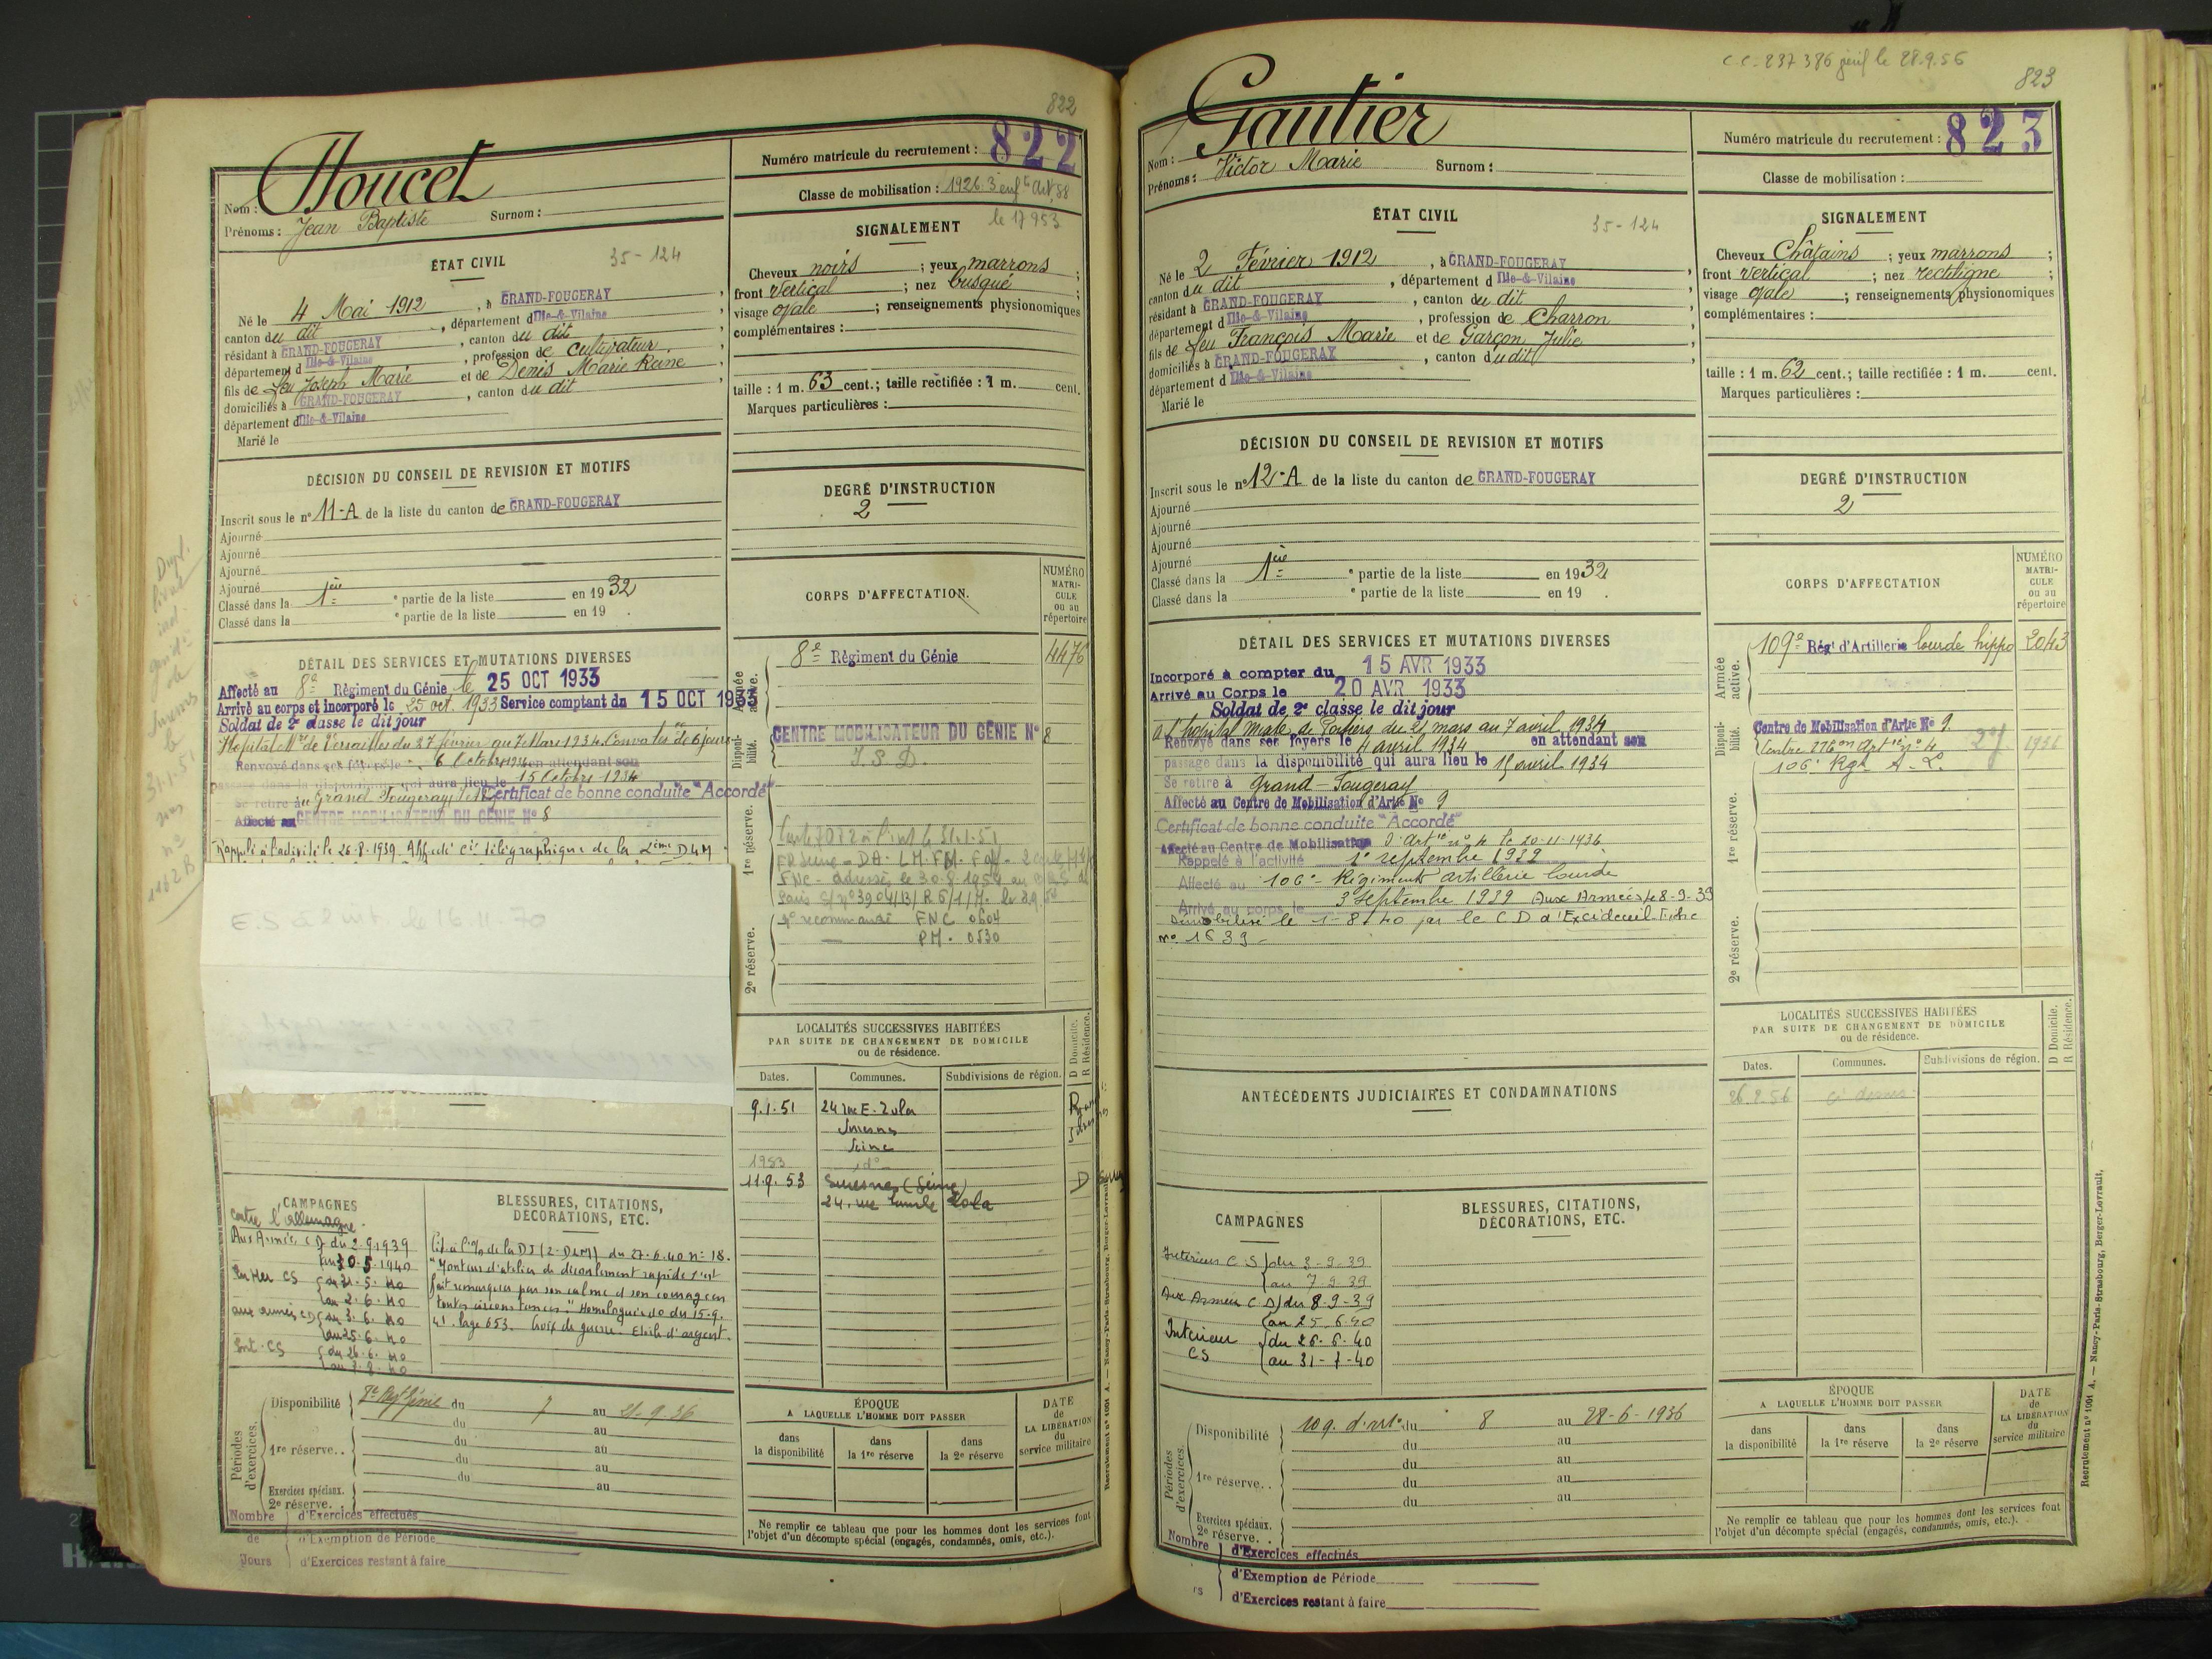 822
Nom : Houcet
Prénoms : Jean Baptiste Surnom :
Numéro matricule du recrutement : 822
Classe de mobilisation : 1926. 3 enfts Art. 58
le 17 9 53
ÉTAT CIVIL
35-124
Né le 4 Mai 1912, à GRAND-FOUGERAY,
canton du dit, département d'Ille-&-Vilaine
résidant à GRAND-FOUGERAY, canton du dit
département d'Ille-&-Vilaine, profession de cultivateur
fils de feu Joseph Marie et de Denis Marie Reine
domiciliés à GRAND-FOUGERAY, canton du dit
département d'Ille-&-Vilaine
Marié le
SIGNALEMENT
Cheveux noirs ; yeux marrons ;
front vertical ; nez busqué ;
visage ovale ; renseignements physionomiques
complémentaires :
taille : 1 m. 63 cent.; taille rectifiée : 1 m. cent.
Marques particulières :
DÉCISION DU CONSEIL DE REVISION ET MOTIFS
Inscrit sous le n° 11-A de la liste du canton de GRAND-FOUGERAY
Ajourné
Ajourné
Ajourné
Ajourné
Classé dans la 1ère e partie de la liste en 1932
Classé dans la e partie de la liste en 19 .
DEGRÉ D'INSTRUCTION
2
DÉTAIL DES SERVICES ET MUTATIONS DIVERSES
Affecté au 8e Régiment du Génie le 25 OCT 1933
Arrivé au corps et incorporé le 25 oct. 1933 Service comptant du 15 OCT 1933
Soldat de 2e classe le dit jour
Hopital Mre de Versailles du 27 février au 7 Mars 1934. Convalce de 6 jours
Renvoyé dans ses foyers le 6 Octobre 1934 en attendant son
passage dans la disponibilité qui aura lieu le 15 Octobre 1934
Se retire à Grand Fougeray Certificat de bonne conduite "Accordé"
Affecté au CENTRE MOBILISATEUR DU GÉNIE N° 8
Rappelé à l'activité le 26.8.1939. Affecté Cie télégraphique de la 2ème DLM
E.S le 16 11 70
CORPS D'AFFECTATION.
NUMÉRO MATRICULE ou au répertoire
Armée active.
8e Régiment du Génie 4476
Disponibilité.
CENTRE MOBILISATEUR DU GÉNIE N° 8
I.S.D.
1re réserve.
2e réserve.
n° recommandé FNC 0604
PM. 0530
LOCALITÉS SUCCESSIVES HABITÉES
PAR SUITE DE CHANGEMENT DE DOMICILE
ou de résidence.
D Domicile. R Résidence.
Dates. Communes. Subdivisions de région.
9.1.51 24 rue E. Zola
Suresnes
Seine
1953 do
11.9.53 Suresnes (Seine) D
24. rue Emile Zola
CAMPAGNES
contre l'allemagne
Aux Armées CD du 2.9.1939
au 30.5.1940
En Mer CS du 31.5.40
au 2.6.40
aux armées CD du 3.6.40
au 25.6.40
Int. CS du 26.6.40
BLESSURES, CITATIONS,
DÉCORATIONS, ETC.
Cit. à l'O/ de la DI (2e DLM) du 27.6.40 n° 18.
"Monteur d'atelier de déroulement rapide s'est
fait remarquer par son calme et son courage en
toutes circonstances." Homologuée JO du 15.9.
41. page 653. Croix de guerre. Etoile d'argent.
Périodes d'exercices.
Disponibilité 8e Rgt Génie du 7 au 21-9-36
du au
1re réserve.. du au
du au
du au
Exercices spéciaux.
2e réserve. .
Nombre de Jours
d'Exercices effectués
d'Exemption de Période
d'Exercices restant à faire
ÉPOQUE
A LAQUELLE L'HOMME DOIT PASSER
dans la disponibilité
dans la 1re réserve
dans la 2e réserve
DATE de LA LIBÉRATION du service militaire
Ne remplir ce tableau que pour les hommes dont les services font
l'objet d'un décompte spécial (engagés, condamnés, omis, etc.).
C.C. 237 386 le 28.9.56
823
Nom : Gautier
Prénoms : Victor Marie Surnom :
Numéro matricule du recrutement : 823
Classe de mobilisation :
ÉTAT CIVIL
35-124
Né le 2 Février 1912, à GRAND-FOUGERAY
canton du dit, département d'Ille-&-Vilaine
résidant à GRAND-FOUGERAY, canton du dit
département d'Ille-&-Vilaine, profession de Charron
fils de feu François Marie et de Garçon Julie
domiciliés à GRAND-FOUGERAY, canton du dit
département d'Ille-&-Vilaine
Marié le
SIGNALEMENT
Cheveux Châtains ; yeux marrons ;
front vertical ; nez rectiligne ;
visage ovale ; renseignements physionomiques
complémentaires :
taille : 1 m. 62 cent.; taille rectifiée : 1 m. cent.
Marques particulières :
DÉCISION DU CONSEIL DE REVISION ET MOTIFS
Inscrit sous le n° 12-A de la liste du canton de GRAND-FOUGERAY
Ajourné
Ajourné
Ajourné
Ajourné
Classé dans la 1ère e partie de la liste en 1932
Classé dans la e partie de la liste en 19 .
DEGRÉ D'INSTRUCTION
2
DÉTAIL DES SERVICES ET MUTATIONS DIVERSES
Incorporé à compter du 15 AVR 1933
Arrivé au Corps le 20 AVR 1933
Soldat de 2e classe le dit jour
à l'hopital mixte de Poitiers du 21 mars au 7 avril 1934
Renvoyé dans ses foyers le 11 avril 1934 en attendant son
passage dans la disponibilité qui aura lieu le 15 avril 1934
Se retire à Grand-Fougeray
Affecté au Centre de Mobilisation d'Artie N° 9
Certificat de bonne conduite "Accordé"
Affecté au Centre de Mobilisation d'Artie n° 4 le 20-11-1936
Rappelé à l'activité 1er septembre 1939
Affecté au 106e Régiment artillerie lourde
Arrivé au corps le 3 septembre 1939 Aux Armées le 8-9-39
Démobilisé le 1-8-40 par le C D d'Excideuil Fiche
N° 1639
CORPS D'AFFECTATION
NUMÉRO MATRICULE ou au répertoire
Armée active.
109e Régt d'Artillerie lourde hippo 2043
Disponibilité.
Centre de Mobilisation d'Artie N° 9.
Centre Artie n° 4
106e Rgt A.L.
1re réserve.
2e réserve.
LOCALITÉS SUCCESSIVES HABITÉES
PAR SUITE DE CHANGEMENT DE DOMICILE
ou de résidence.
D Domicile. R Résidence.
Dates. Communes. Subdivisions de région.
26.8.56 ci dessus
ANTÉCÉDENTS JUDICIAIRES ET CONDAMNATIONS
CAMPAGNES
Intérieur C.S du 3-9-39
au 7-9-39
Aux Armées C.D du 8-9-39
au 25-6-40
Intérieur CS du 26-6-40
au 31-7-40
BLESSURES, CITATIONS,
DÉCORATIONS, ETC.
Périodes d'exercices.
Disponibilité 109. d'artie du 8 au 28-6-1936
du au
1re réserve. . du au
du au
du au
Exercices spéciaux.
2e réserve. .
Nombre
d'Exercices effectués
d'Exemption de Période
d'Exercices restant à faire
ÉPOQUE
A LAQUELLE L'HOMME DOIT PASSER
dans la disponibilité
dans la 1re réserve
dans la 2e réserve
DATE de LA LIBÉRATION du service militaire
Ne remplir ce tableau que pour les hommes dont les services font
l'objet d'un décompte spécial (engagés, condamnés, omis, etc.).
Recrutement n° 1001 A. — Nancy-Paris-Strasbourg, Berger-Levrault.